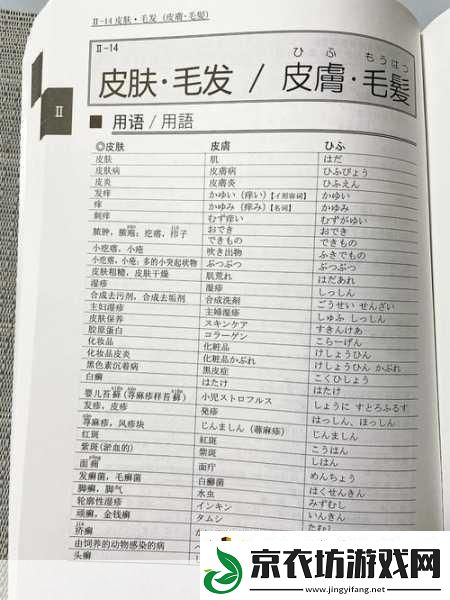 Ⅱ-14 皮肤・毛发（皮膚・毛髪）
Ⅱ-14
ひ ふ もうはつ
皮肤・毛发 / 皮膚・毛髪
Ⅱ
■ 用语 / 用語
◎皮肤 皮膚 ひふ
皮肤 肌 はだ
皮肤病 皮膚病 ひふびょう
皮炎 皮膚炎 ひふえん
发痒 かゆい（痒い）【イ形容詞】 かゆい
痒 かゆみ（痒み）【名詞】 かゆみ
刺痒 むず痒い むずがゆい
脓肿，脓疱；疙瘩，疹子 おでき おでき
できもの できもの
小疙瘩，小疮 吹き出物 ふきでもの
小疙瘩，小疮；多的小突起状物 ぶつぶつ ぶつぶつ
皮肤粗糙，皮肤干燥 肌荒れ はだあれ
湿疹 湿疹 しっしん
合成去污剂，合成去垢剂 合成洗剤 ごうせい せんざい
主妇湿疹 主婦湿疹 しゅふ しっしん
皮肤保养 スキンケア すきんけあ
胶原蛋白 コラーゲン こらーげん
化妆品 化粧品 けしょうひん
化妆品皮炎 化粧品かぶれ けしょうひん かぶれ
黑色素沉着病 黒皮症 こくひしょう
白癣 はたけ はたけ
婴儿苔藓（荨麻疹样苔藓） 小児ストロフルス しょうに すとろふるす
发疹，皮疹 発疹 はっしん、ほっしん
荨麻疹，风疹块 じんましん（蕁麻疹） じんましん
红斑 紅斑 こうはん
紫斑（淤血的） 紫斑 しはん
面疔 めんちょう
发癣菌，毛癣菌 白癬菌 はくせんきん
脚癣，脚气 水虫 みずむし
轮廓性湿疹 インキン いんきん
顽癣，金钱癣 タムシ たむし
疥癣
由饲养的动物感染的病
头癣
京衣坊游戏网
www.jingyifang.net